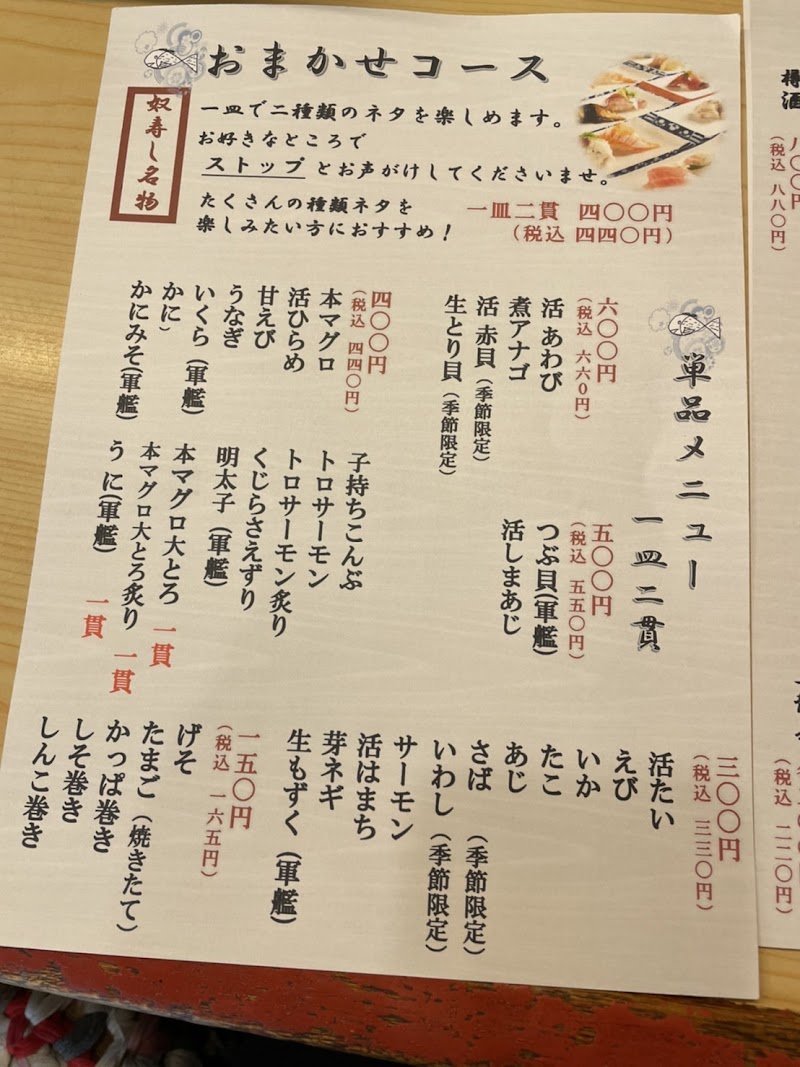 おまかせコース
奴寿し名物
一皿で二種類のネタを楽しめます。
お好きなところで
ストップとお声がけしてくださいませ。
たくさんの種類ネタを
楽しみたい方におすすめ!
一皿二貫 四〇〇円
(税込 四四〇円)
単品メニュー
一皿二貫
六〇〇円
(税込 六六０円)
活 あわび
煮アナゴ
活 赤貝(季節限定)
生とり貝(季節限定)
五〇〇円
(税込 五五〇円)
つぶ貝(軍艦)
活しまあじ
四〇〇円
(税込 四四〇円)
本マグロ
活ひらめ
甘えび
うなぎ
いくら(軍艦)
かに)
かにみそ(軍艦)
子持ちこんぶ
トロサーモン
トロサーモン炙り
くじらさえずり
明太子(軍艦)
本マグロ大とろ 一貫
本マグロ大とろ炙り 一貫
うに(軍艦) 一貫
三〇〇円
(税込 三三〇円)
活たい
えび
いか
たこ
あじ
さば(季節限定)
いわし(季節限定)
サーモン
活はまち
芽ネギ
生もずく(軍艦)
一五〇円
(税込 一六五円)
げそ
たまご(焼きたて)
かっぱ巻き
しそ巻き
しんこ巻き
樽酒
八〇〇円
(税込 八八〇円)
(税込 二二〇円)